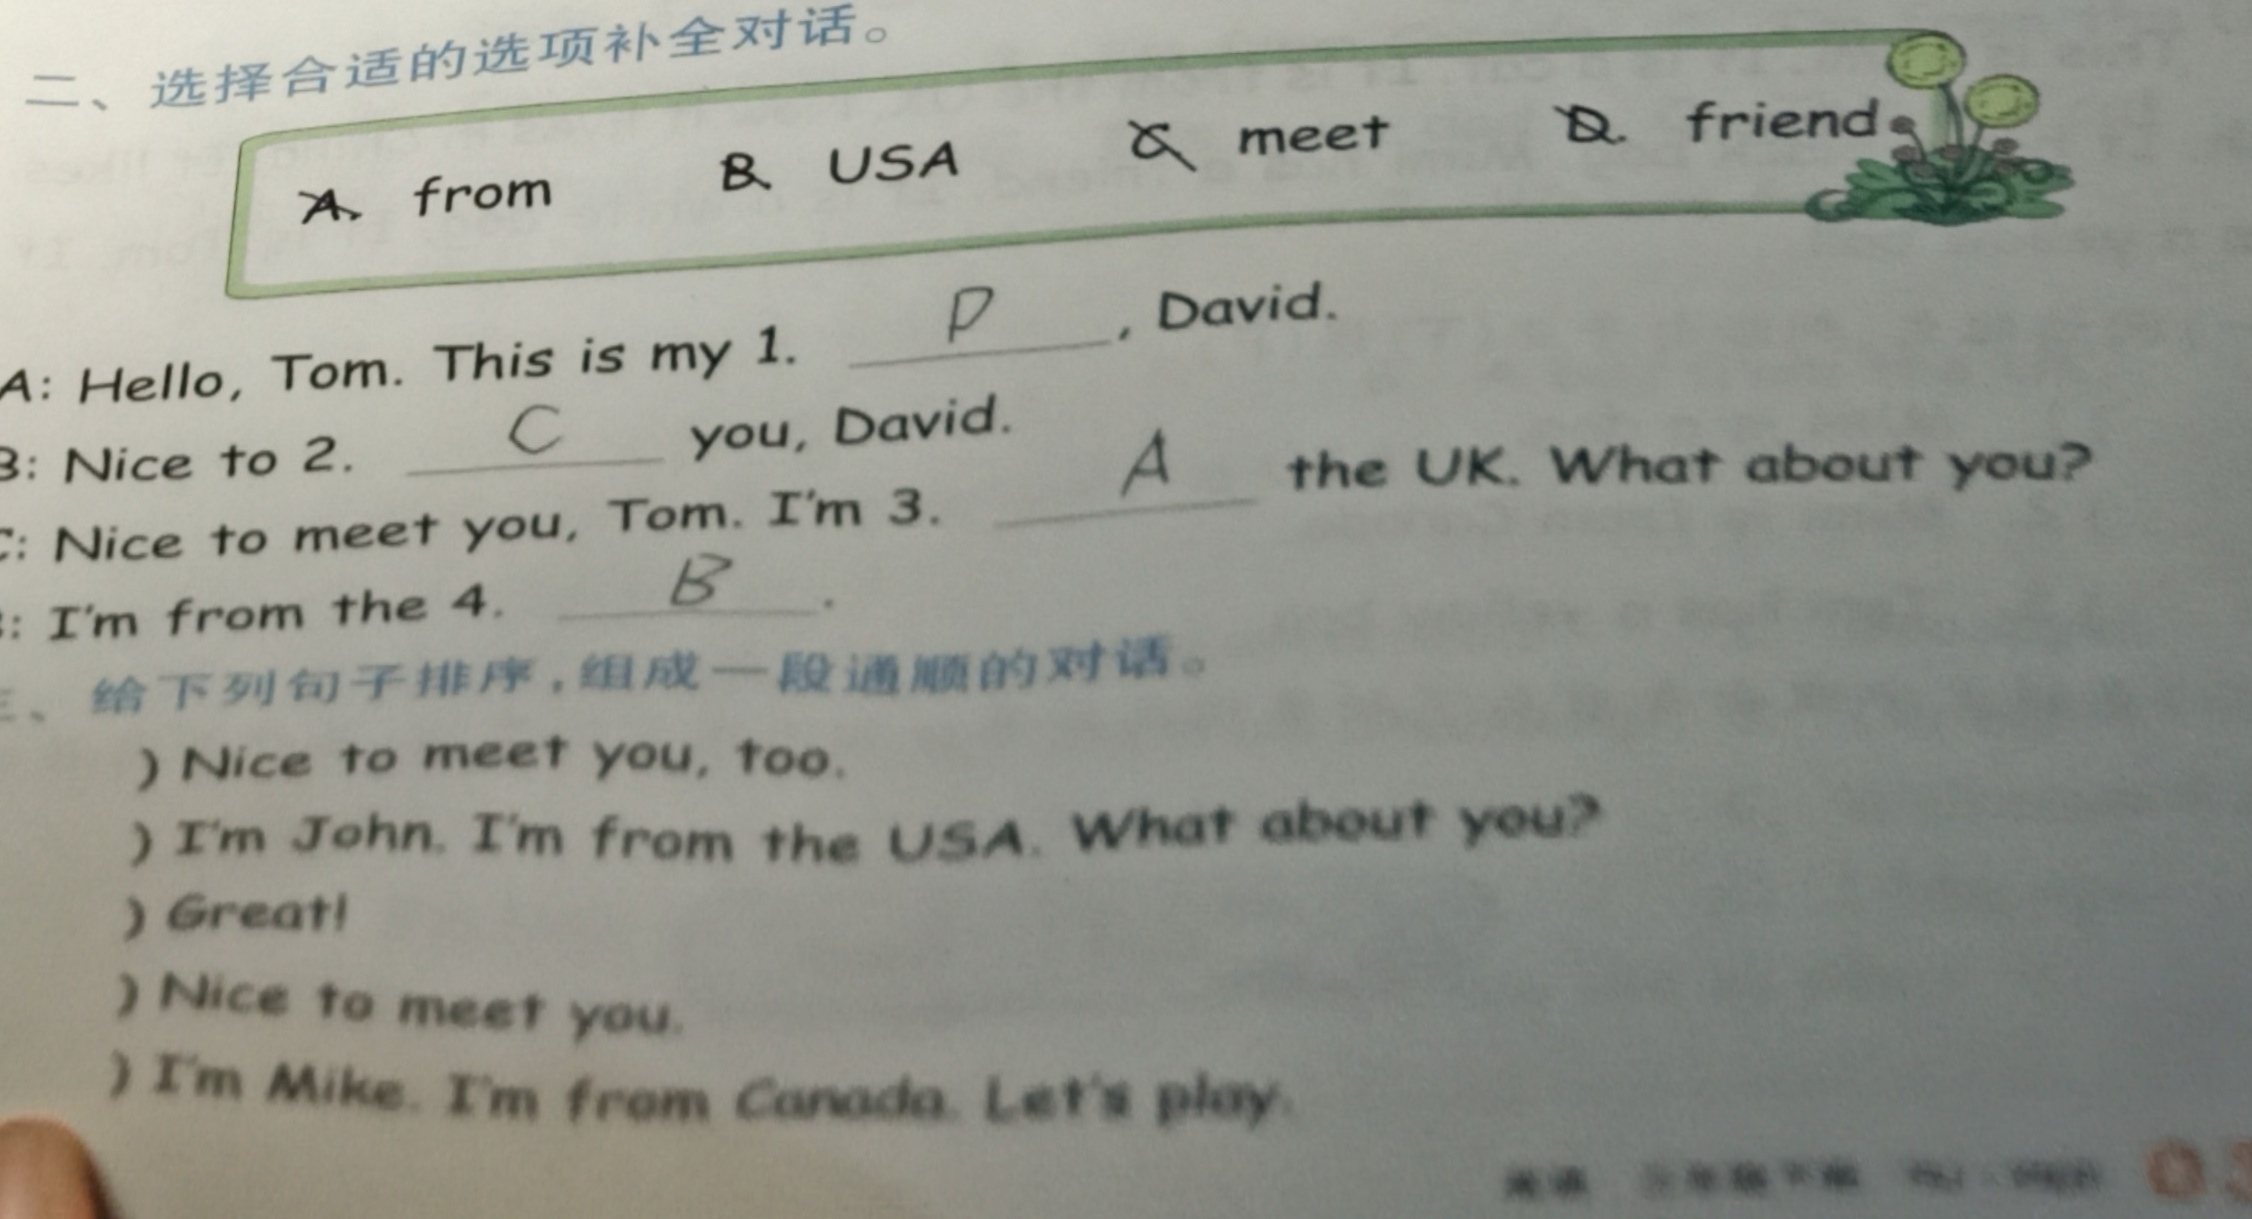 二、选择合适的选项补全对话。
A. from B. USA C. meet D. friend
A: Hello, Tom. This is my 1. D , David.
B: Nice to 2. C you, David.
C: Nice to meet you, Tom. I'm 3. A the UK. What about you?
: I'm from the 4. B .
三、给下列句子排序,组成一段通顺的对话。
) Nice to meet you, too.
) I'm John. I'm from the USA. What about you?
) Great!
) Nice to meet you.
) I'm Mike. I'm from Canada. Let's play.
英语 三年级下册